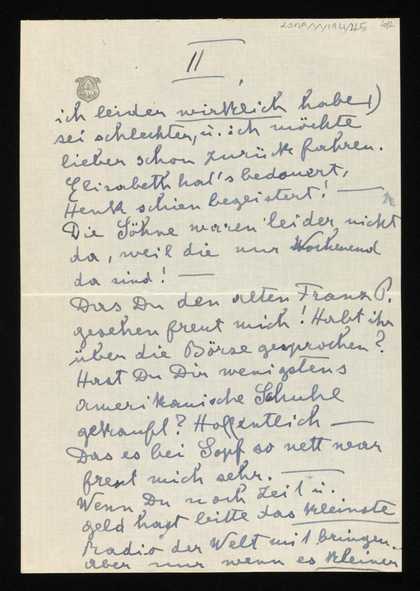 II
ich leider wirklich habe!)
sei schlechter, u. ich möchte
lieber schon zurück fahren.
Elisabeth hat's bedauert,
Henk schien begeistert! —
Die Söhne waren leider nicht
da, weil die nur Wochenend
da sind! —
Das Du den alten Franz P.
gesehen freut mich! Habt ihr
über die Börse gesprochen?
Hast Du Dir wenigstens
amerikanische Schuhe
gekauft? Hoffentlich —
Das es bei Sopf so nett war
freut mich sehr. —
Wenn Du noch Zeit u.
geld hast bitte das kleinste
Radio der Welt mit bringen.
aber nur wenn es kleiner